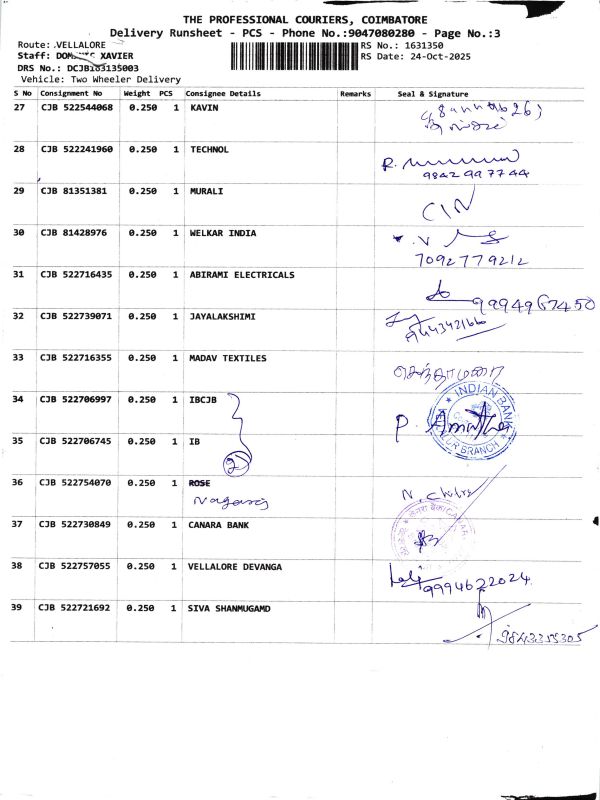 THE PROFESSIONAL COURIERS, COIMBATORE
Delivery Runsheet - PCS - Phone No.:9047080280 - Page No.:3
Route: VELLALORE RS No.: 1631350
Staff: XAVIER RS Date: 24-Oct-2025
DRS No.: DCJB163135003
Vehicle: Two Wheeler Delivery
S No Consignment No Weight PCS Consignee Details Remarks Seal & Signature
27 CJB 522544068 0.250 1 KAVIN
28 CJB 522241960 0.250 1 TECHNOL
9842997744
29 CJB 81351381 0.250 1 MURALI
30 CJB 81428976 0.250 1 WELKAR INDIA
7092779212
31 CJB 522716435 0.250 1 ABIRAMI ELECTRICALS
9994967450
32 CJB 522739071 0.250 1 JAYALAKSHIMI
33 CJB 522716355 0.250 1 MADAV TEXTILES
செந்தாமரை
34 CJB 522706997 0.250 1 IBCJB
INDIAN BANK
35 CJB 522706745 0.250 1 IB
2
BRANCH
36 CJB 522754070 0.250 1 ROSE
37 CJB 522730849 0.250 1 CANARA BANK
38 CJB 522757055 0.250 1 VELLALORE DEVANGA
9994622024
39 CJB 522721692 0.250 1 SIVA SHANMUGAMD
9843355305